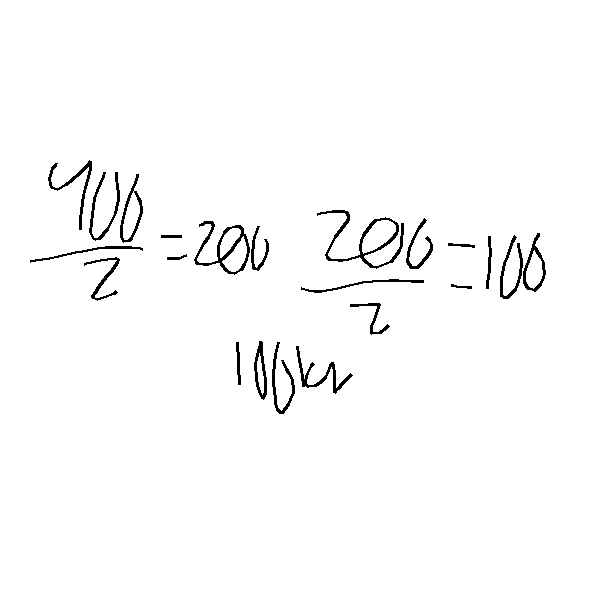 400/2 = 200 200/2 = 100
100kr